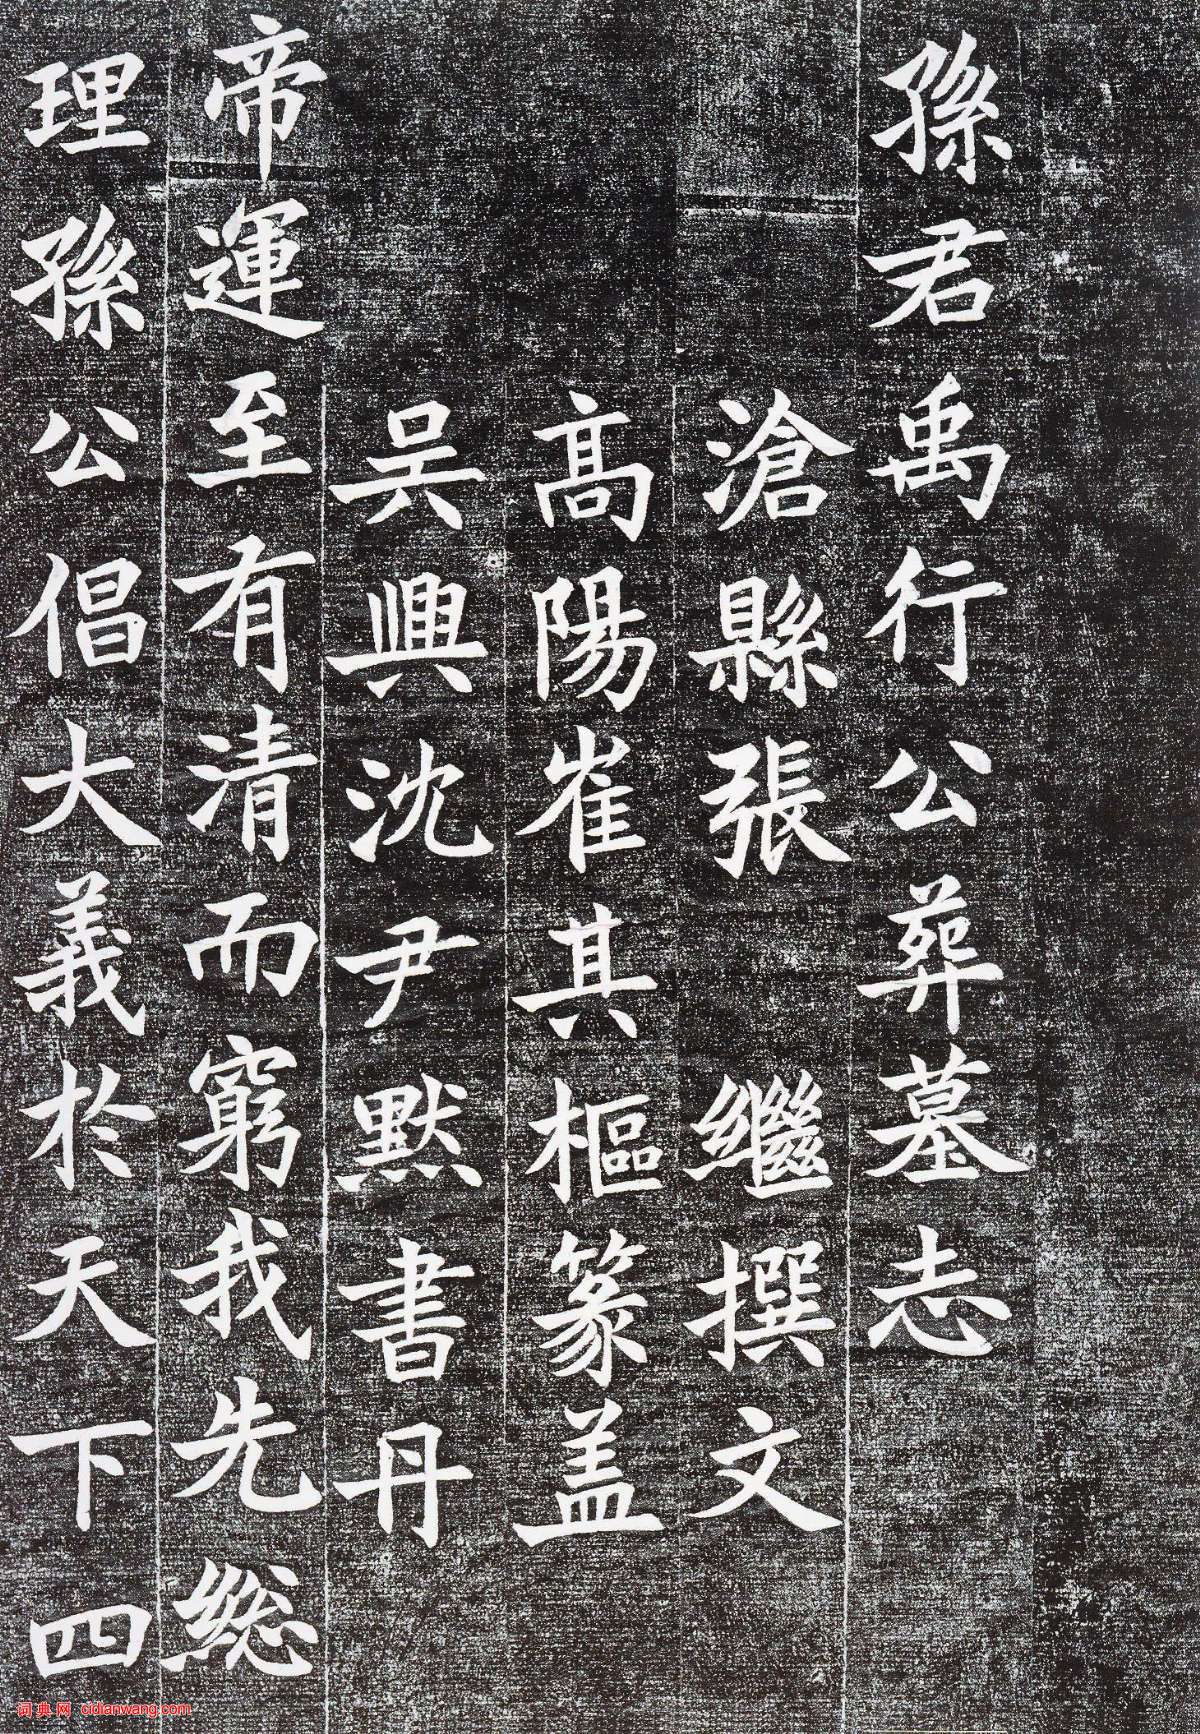 孫君禹行公葬墓志
滄縣張 繼撰文
高陽崔其樞篆蓋
吴興沈尹默書丹
帝運至有清而窮我先總
理孫公倡大義於天下四
词典网 cidianwang.com